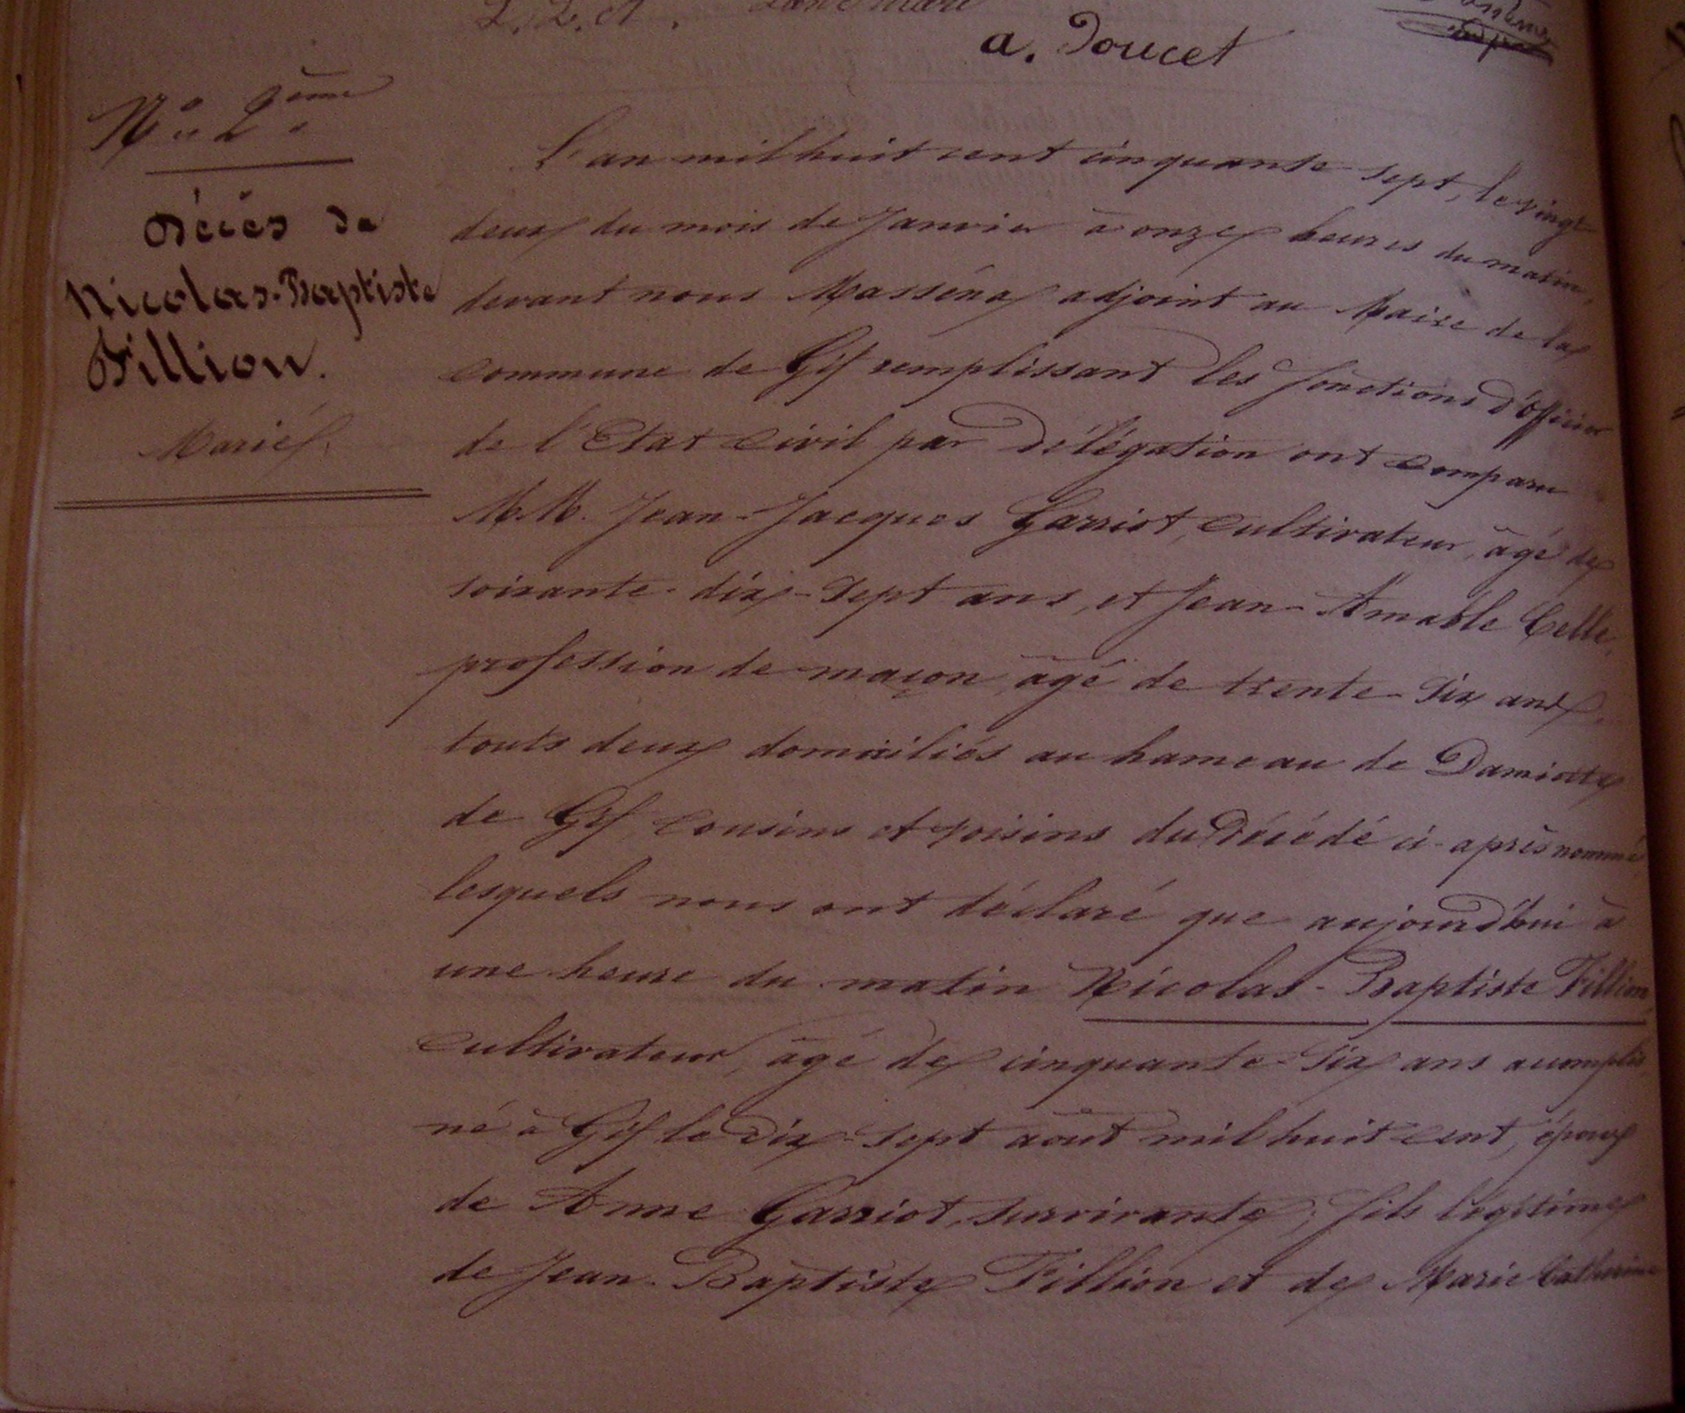 a. Doucet
N° 2ème
Décès de
Nicolas-Baptiste
Fillion.
Marié
L'an mil huit cent cinquante sept, le vingt
deux du mois de Janvier à onze heures du matin,
devant nous Masséna adjoint au Maire de la
commune de Gif remplissant les fonctions d'Officier
de l'Etat Civil par délégation ont comparu
M.M. Jean-Jacques Garriot, cultivateur, âgé de
soixante-dix-sept ans, et Jean-Amable Celle,
profession de maçon, âgé de trente-six ans
touts deux domiciliés au hameau de Damiette
de Gif, cousins et voisins du Décédé ci-après nommé
lesquels nous ont déclaré que aujourd'hui à
une heure du matin Nicolas-Baptiste Fillion,
cultivateur, âgé de cinquante-six ans accomplis
né à Gif le dix-sept août mil huit cent, époux
de Anne Garriot, survivante, fils légitime
de Jean-Baptiste Fillion et de Marie Catherine